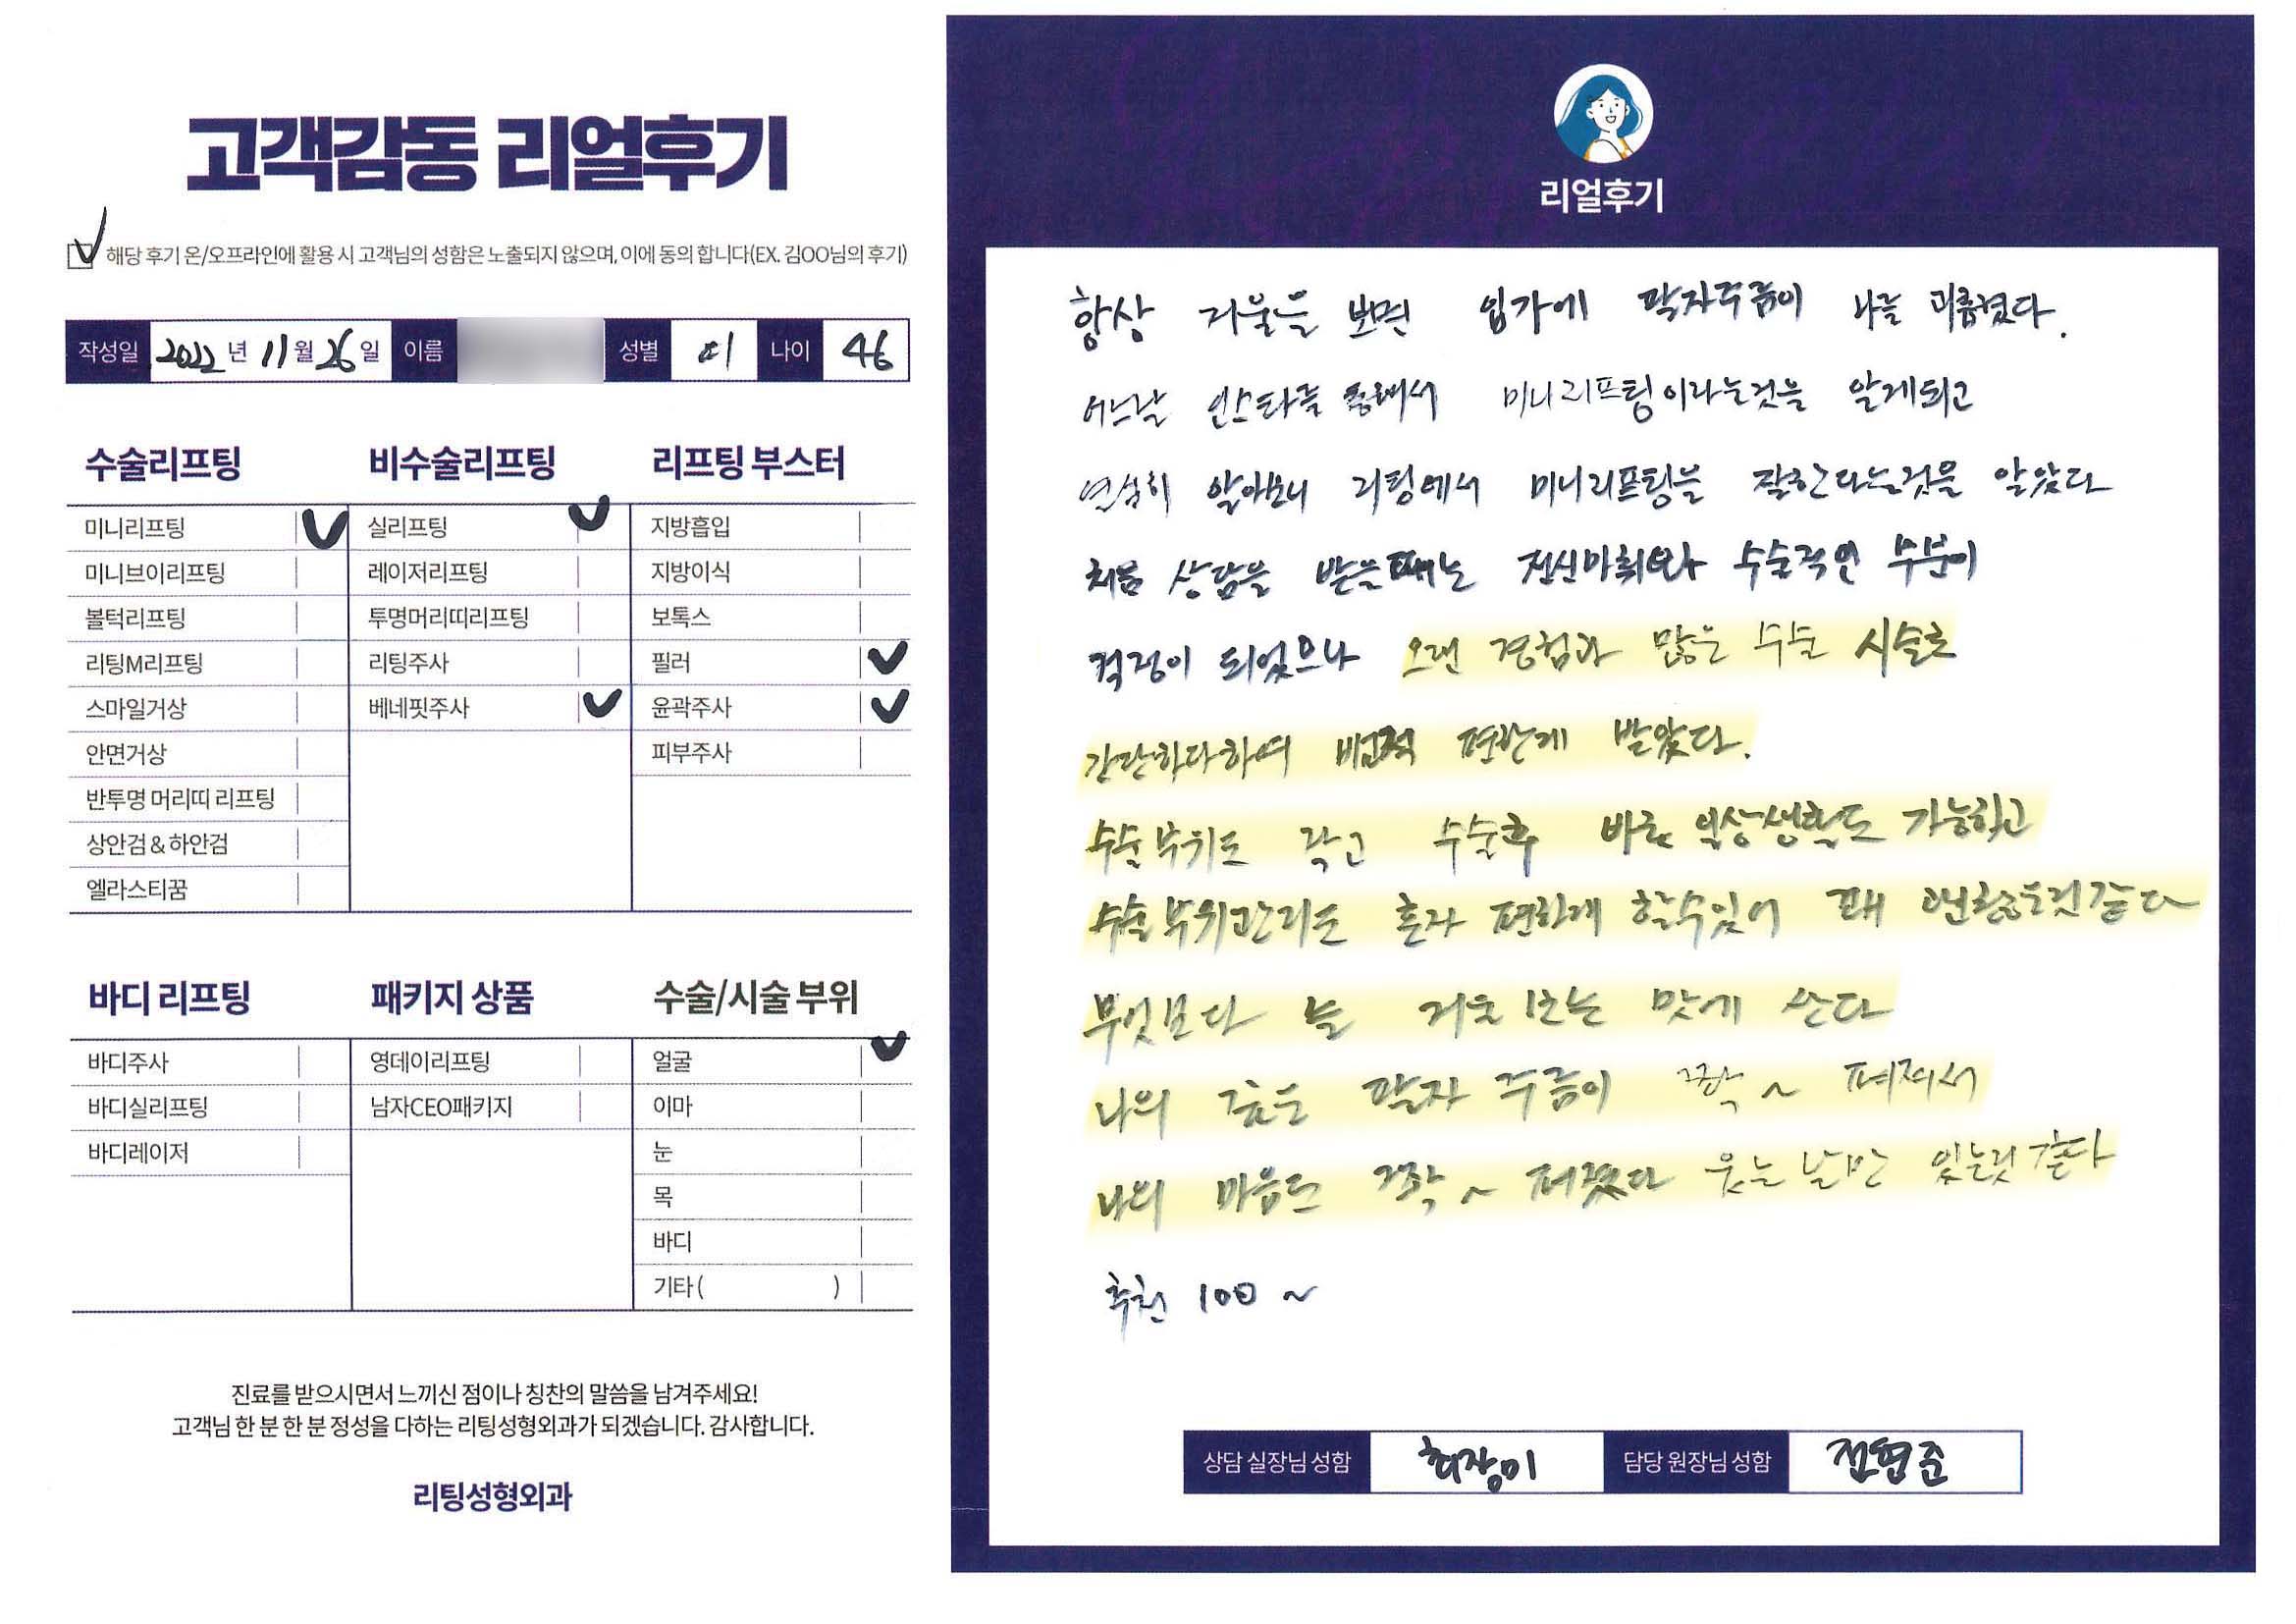 고객감동 리얼후기
해당 후기 온/오프라인에 활용 시 고객님의 성함은 노출되지 않으며, 이에 동의 합니다(EX. 김OO님의 후기)
작성일 2022년 11월 26일 이름 성별 여 나이 46
수술리프팅
미니리프팅
미니브이리프팅
볼턱리프팅
리팅M리프팅
스마일거상
안면거상
반투명 머리띠 리프팅
상안검 & 하안검
엘라스티꿈
비수술리프팅
실리프팅
레이저리프팅
투명머리띠리프팅
리팅주사
베네핏주사
리프팅 부스터
지방흡입
지방이식
보톡스
필러
윤곽주사
피부주사
바디 리프팅
바디주사
바디실리프팅
바디레이저
패키지 상품
영데이리프팅
남자CEO패키지
수술/시술 부위
얼굴
이마
눈
목
바디
기타 ( )
진료를 받으시면서 느끼신 점이나 칭찬의 말씀을 남겨주세요!
고객님 한 분 한 분 정성을 다하는 리팅성형외과가 되겠습니다. 감사합니다.
리팅성형외과
리얼후기
항상 거울을 보면 입가에 팔자주름이 나를 괴롭혔다.
어느날 인스타를 통해서 미니리프팅이라는것을 알게되고
연심히 알아보니 리팅에서 미니리프팅을 잘한다는것을 알았다
처음 상담을 받을때는 전신마취와 수술적인 부분이
걱정이 되었으나 오랜 경험과 많은 수술 시술로
간단하다하여 비교적 편한게 받았다.
수술부위도 작고 수술후 바로 일상생활도 가능하고
수술부위관리도 혼자 편하게 할수있어 꽤 괜찮은것같다
무엇보다 늘 거울 보는 맛에 산다
나의 깊은 팔자 주름이 쫙~ 펴져서
나의 마음도 쫙~ 펴졌다 웃는 날만 있는것 같다
추천 100 ~
상담 실장님 성함 최장미 담당 원장님 성함 전형준